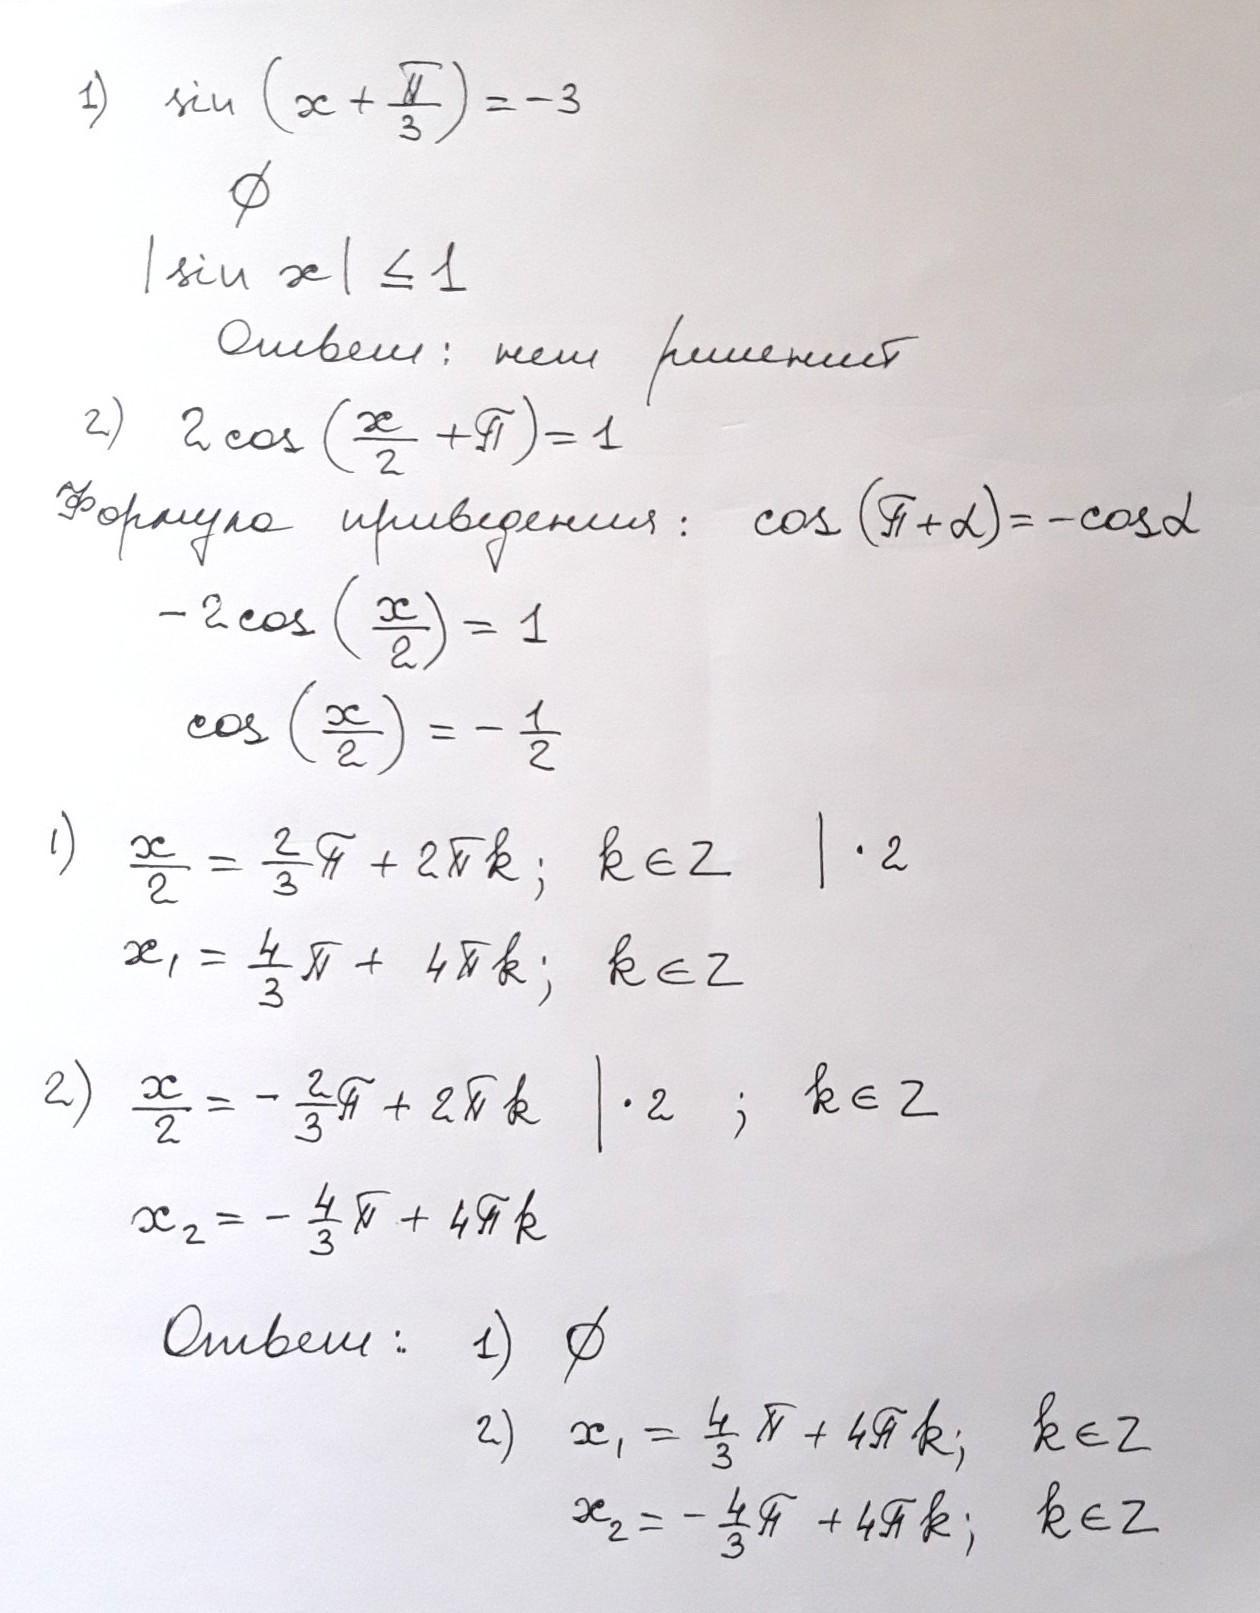 1) sin (x + π/3) = -3
∅
|sin x| ≤ 1
Ответ: нет решений
2) 2 cos (x/2 + π) = 1
Формула приведения: cos (π + α) = - cos α
- 2 cos (x/2) = 1
cos (x/2) = - 1/2
1) x/2 = 2/3 π + 2πk; k ∈ Z | · 2
x₁ = 4/3 π + 4πk; k ∈ Z
2) x/2 = - 2/3 π + 2πk | · 2 ; k ∈ Z
x₂ = - 4/3 π + 4πk
Ответ: 1) ∅
2) x₁ = 4/3 π + 4πk; k ∈ Z
x₂ = - 4/3 π + 4πk; k ∈ Z